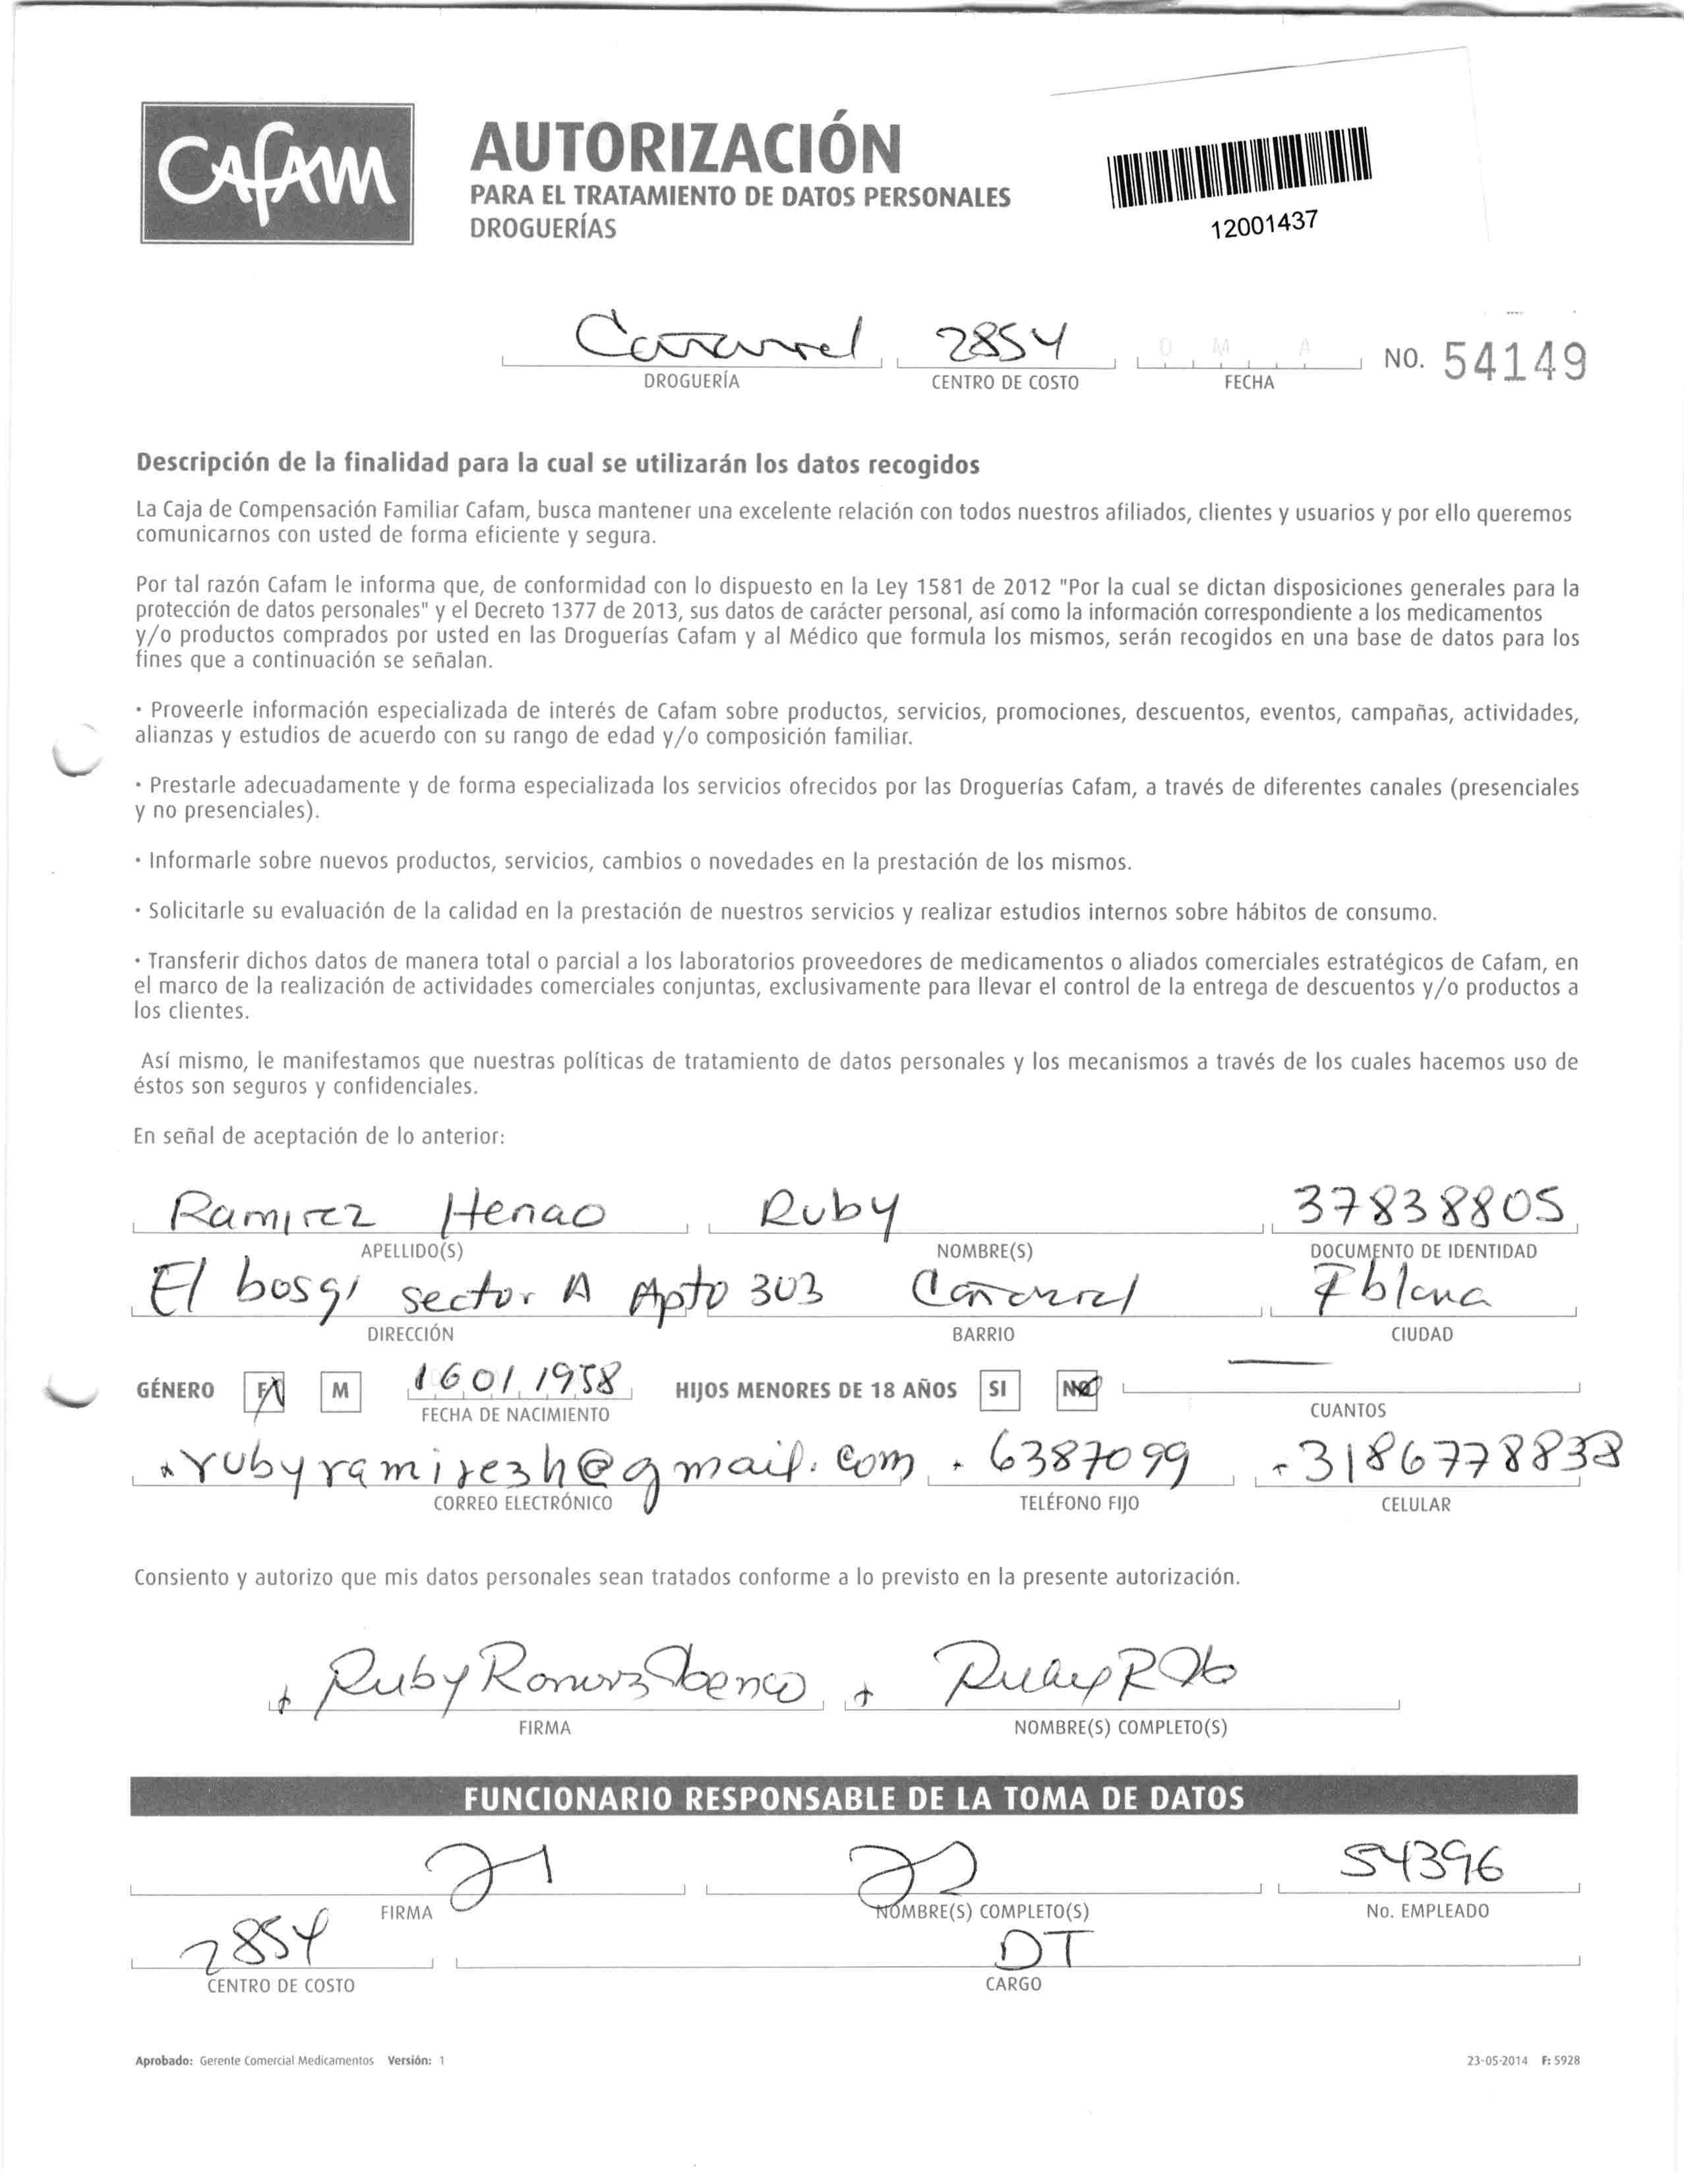 CAFAM
AUTORIZACIÓN
PARA EL TRATAMIENTO DE DATOS PERSONALES
DROGUERÍAS
12001437
Cañaveral 2854 D M A NO. 54149
DROGUERÍA CENTRO DE COSTO FECHA
Descripción de la finalidad para la cual se utilizarán los datos recogidos
La Caja de Compensación Familiar Cafam, busca mantener una excelente relación con todos nuestros afiliados, clientes y usuarios y por ello queremos
comunicarnos con usted de forma eficiente y segura.
Por tal razón Cafam le informa que, de conformidad con lo dispuesto en la Ley 1581 de 2012 "Por la cual se dictan disposiciones generales para la
protección de datos personales" y el Decreto 1377 de 2013, sus datos de carácter personal, así como la información correspondiente a los medicamentos
y/o productos comprados por usted en las Droguerías Cafam y al Médico que formula los mismos, serán recogidos en una base de datos para los
fines que a continuación se señalan.
· Proveerle información especializada de interés de Cafam sobre productos, servicios, promociones, descuentos, eventos, campañas, actividades,
alianzas y estudios de acuerdo con su rango de edad y/o composición familiar.
· Prestarle adecuadamente y de forma especializada los servicios ofrecidos por las Droguerías Cafam, a través de diferentes canales (presenciales
y no presenciales).
· Informarle sobre nuevos productos, servicios, cambios o novedades en la prestación de los mismos.
· Solicitarle su evaluación de la calidad en la prestación de nuestros servicios y realizar estudios internos sobre hábitos de consumo.
· Transferir dichos datos de manera total o parcial a los laboratorios proveedores de medicamentos o aliados comerciales estratégicos de Cafam, en
el marco de la realización de actividades comerciales conjuntas, exclusivamente para llevar el control de la entrega de descuentos y/o productos a
los clientes.
Así mismo, le manifestamos que nuestras políticas de tratamiento de datos personales y los mecanismos a través de los cuales hacemos uso de
éstos son seguros y confidenciales.
En señal de aceptación de lo anterior:
Ramirez Henao Ruby 37838805
APELLIDO(S) NOMBRE(S) DOCUMENTO DE IDENTIDAD
El sector A Apto 303 Cañaveral Fblanca
DIRECCIÓN BARRIO CIUDAD
GÉNERO F M 16 01 1958 HIJOS MENORES DE 18 AÑOS SI NO
FECHA DE NACIMIENTO CUANTOS
rubyramirezh@gmail.com 6387099 3186778838
CORREO ELECTRÓNICO TELÉFONO FIJO CELULAR
Consiento y autorizo que mis datos personales sean tratados conforme a lo previsto en la presente autorización.
Ruby Ramirez Henao Ruby R
FIRMA NOMBRE(S) COMPLETO(S)
FUNCIONARIO RESPONSABLE DE LA TOMA DE DATOS
54396
FIRMA NOMBRE(S) COMPLETO(S) No. EMPLEADO
2854 DT
CENTRO DE COSTO CARGO
Aprobado: Gerente Comercial Medicamentos Versión: 1 23-05-2014 F: 5928